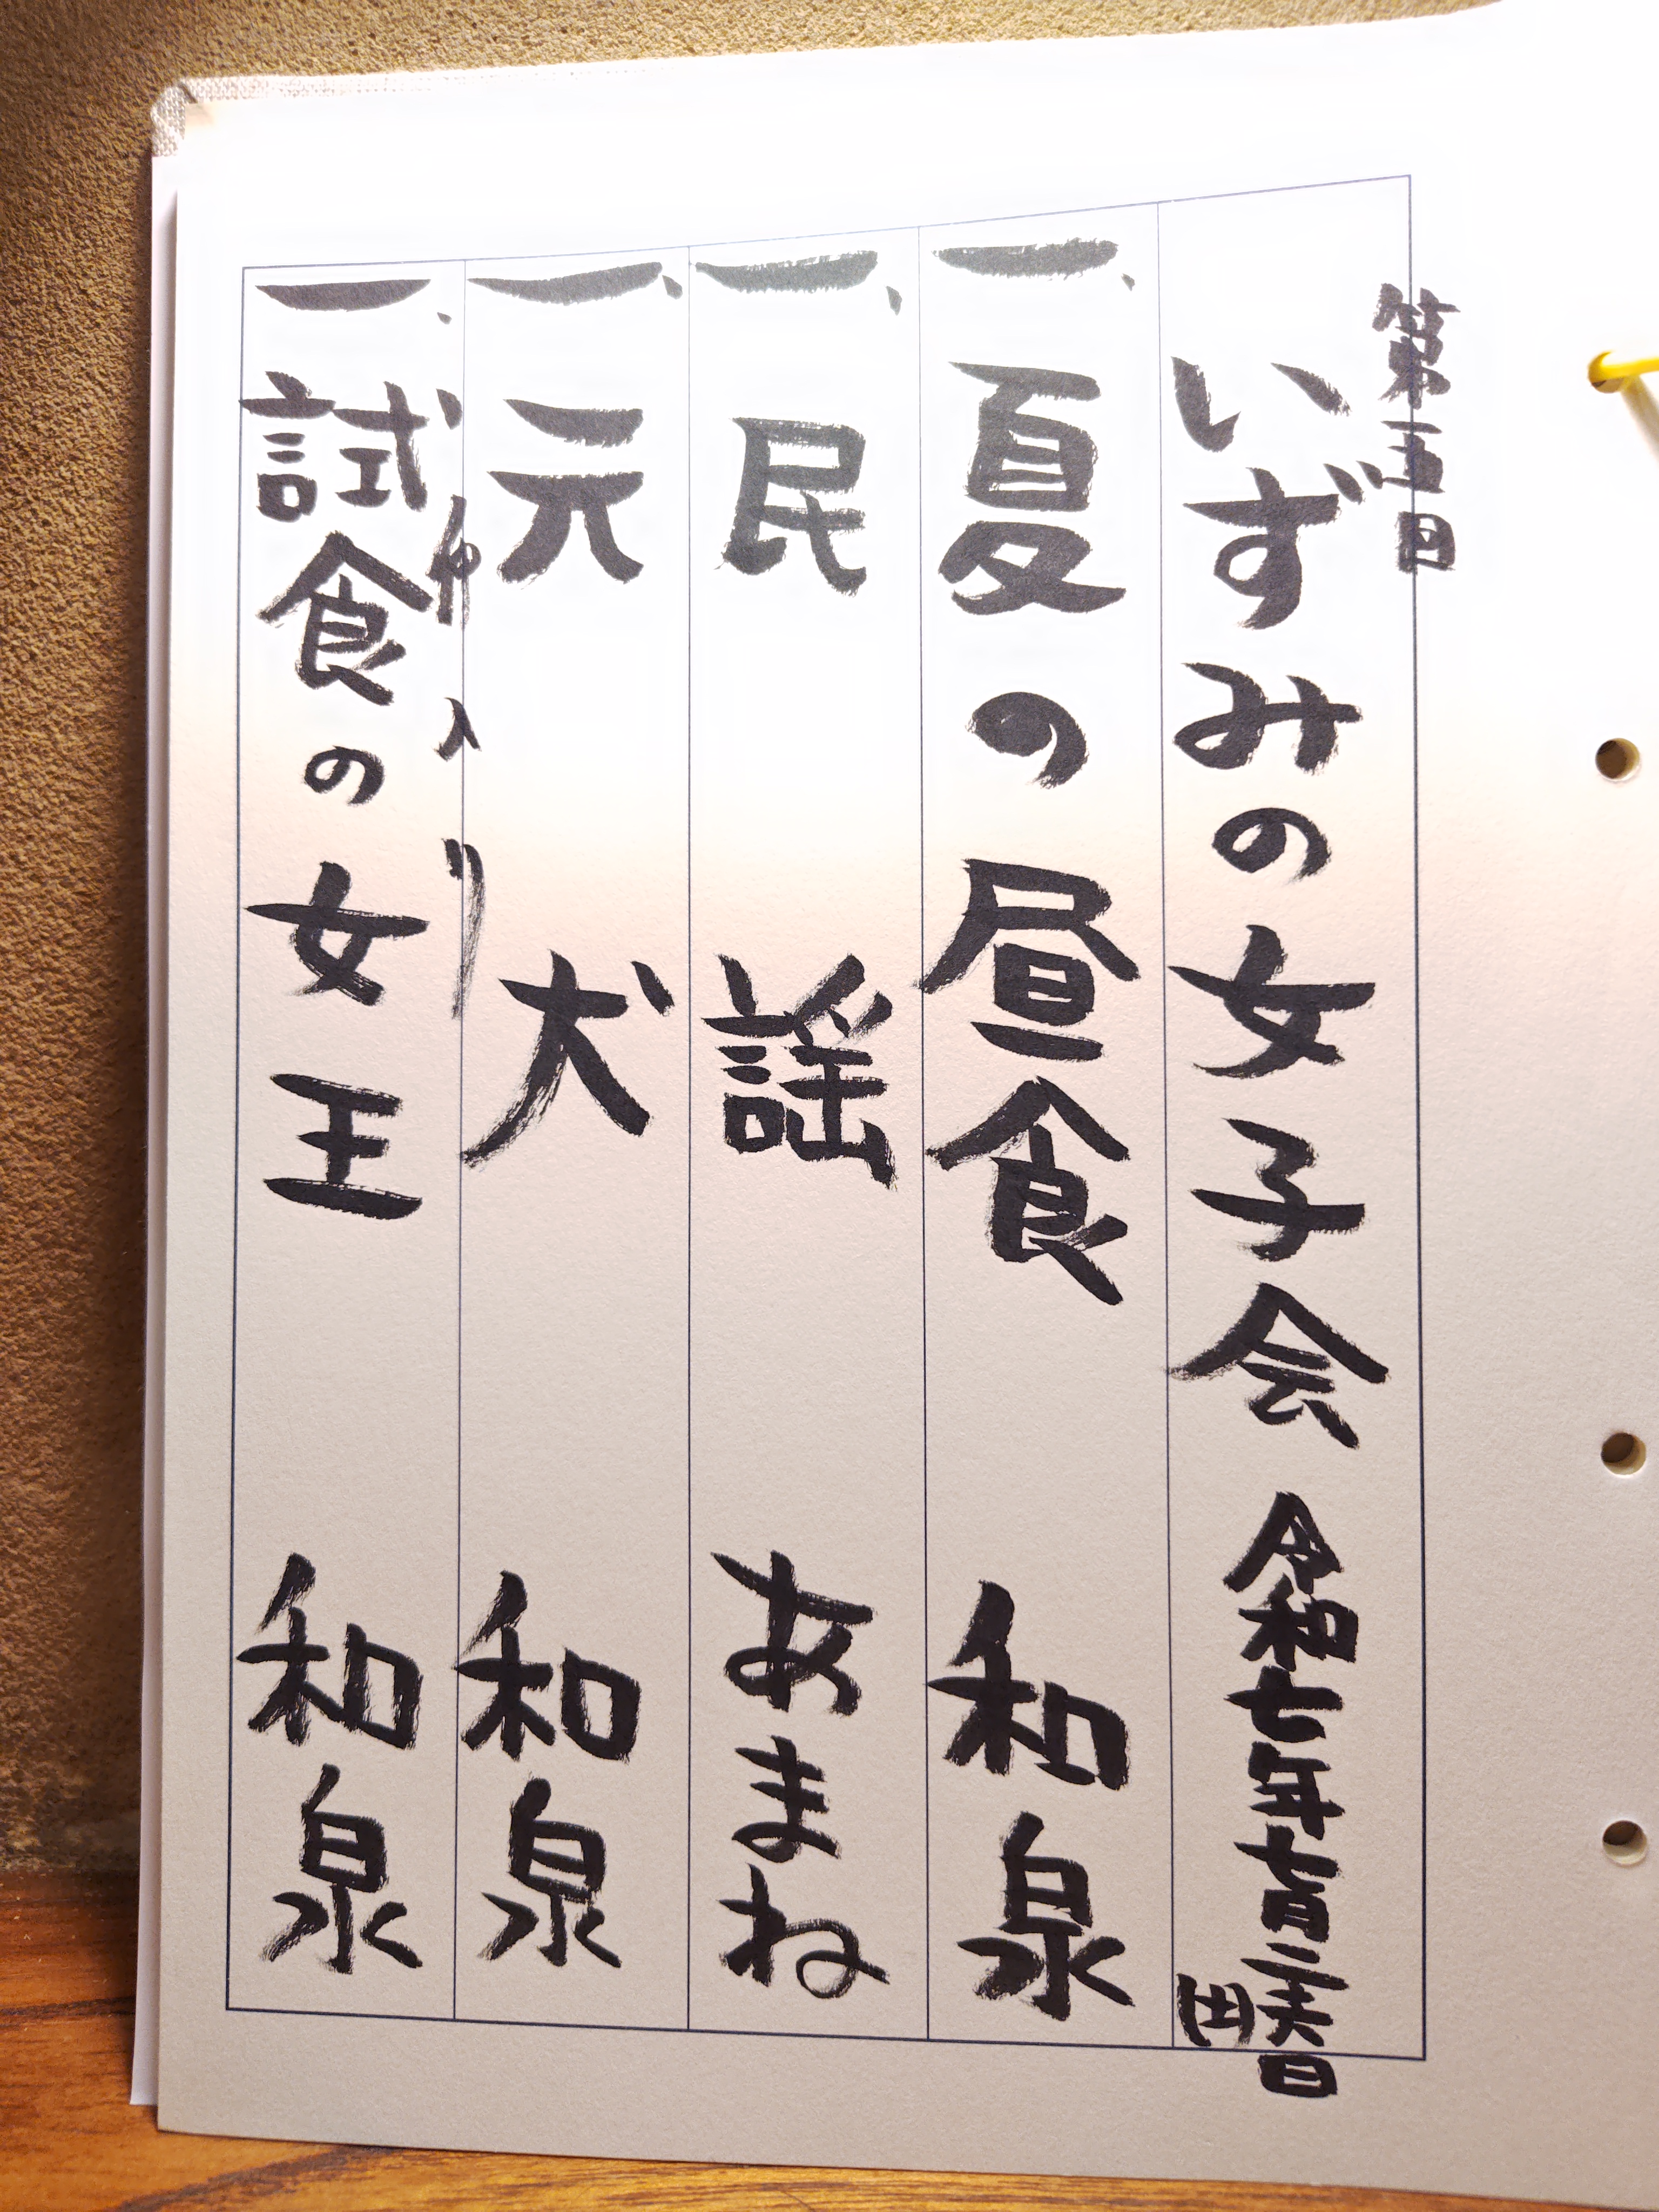 第五回
いずみの女子会 令和七年七月二十六日(土)
一、夏の昼食 和泉
一、民謡 あまね
一、元犬 和泉
仲入り
一、試食の女王 和泉